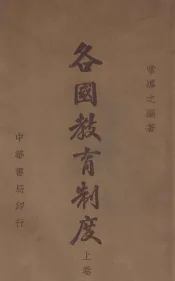 常導之編著
各國教育制度
上卷
中華書局印行